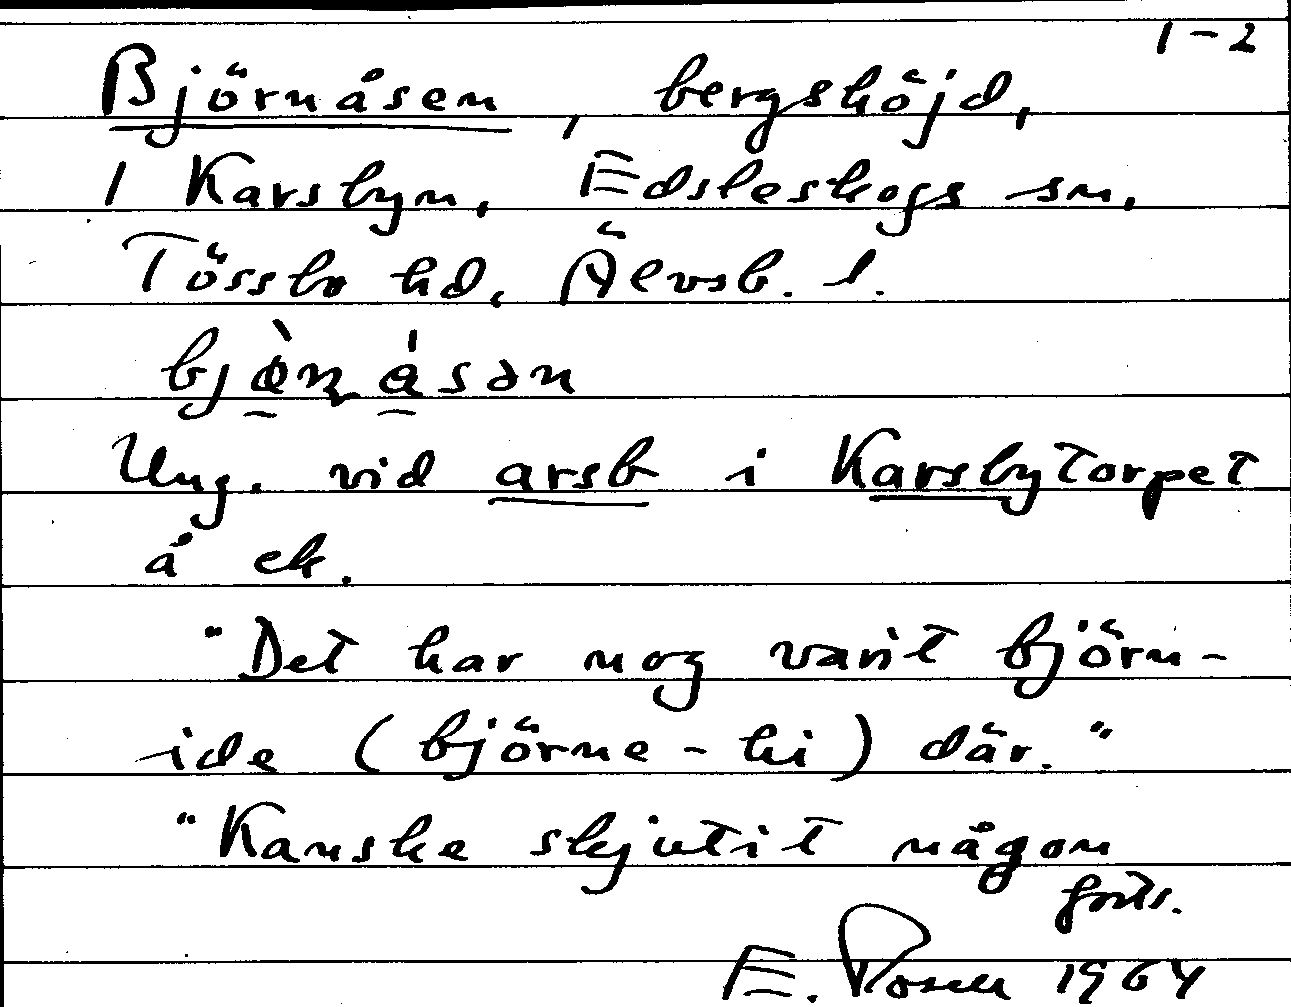 1-2
Björnåsen, bergshöjd,
i Karsbyn, Edsleskogs sn,
Tössbo hd, Älvsb. l.
Ung. vid arsb i Karsbytorpet
å ek.
"Det har nog varit björn-
ide (björne-hi) där."
"Kanske skjutit någon
forts.
E. 1964